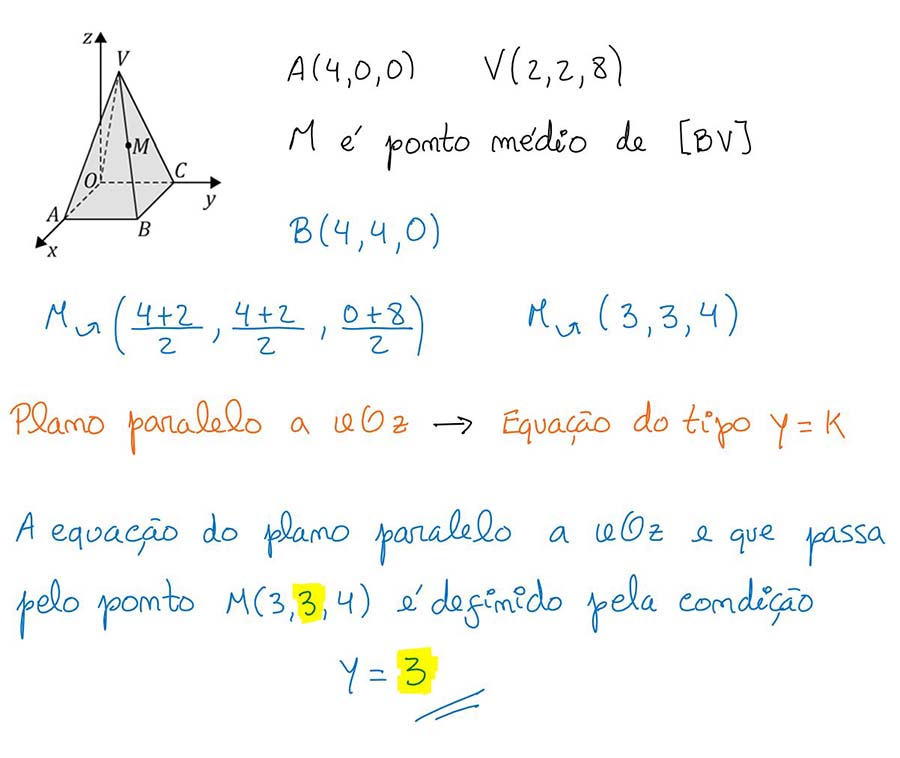 z
V
M
O
C
y
A
B
x
A(4,0,0) V(2,2,8)
M é ponto médio de [BV]
B(4,4,0)
M↝(4+2/2, 4+2/2, 0+8/2) M↝(3,3,4)
Plano paralelo a xOz → Equação do tipo y = K
A equação do plano paralelo a xOz e que passa
pelo ponto M(3,3,4) é definido pela condição
y = 3